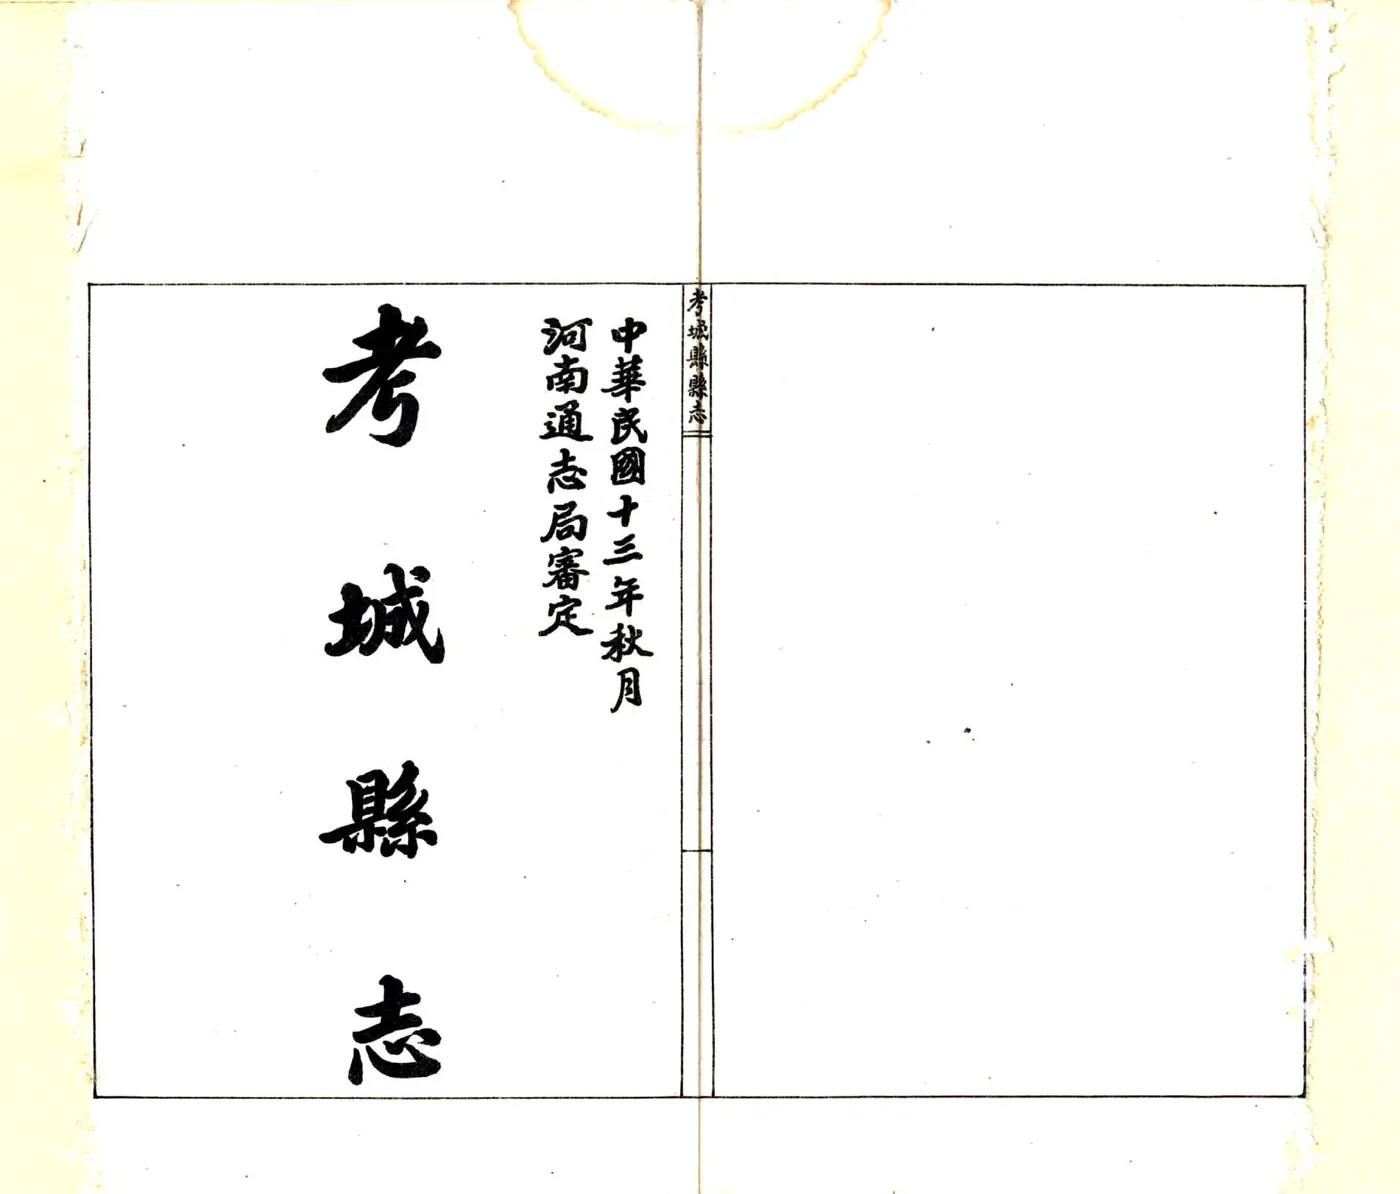 考城縣縣志
中華民國十三年秋月
河南通志局審定
考城縣志